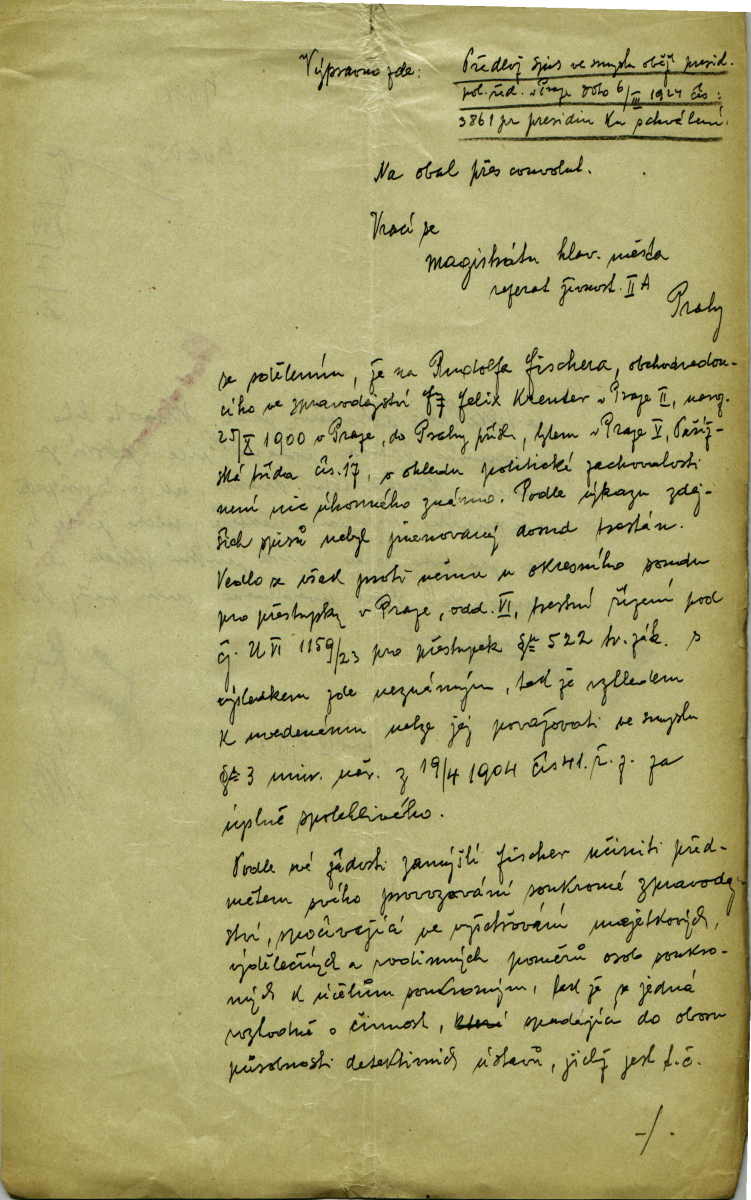 Výpravno zde:
Předlož spis ve smyslu oběž. presid.
pol. řed. v Praze dto 6/III 1924 čís:
3861 pr presidiu ku schválení.
Na obal přes convolut.
Vrací se
magistrátu hlav. města
referat živnost. II A
Prahy
se sdělením, že na Rudolfa Fischera, obchodvedou-
cího ve zpravodajství Felix Kreuter v Praze II, narz.
25/X 1900 v Praze, do Prahy přísl., bytem v Praze V, Paříž-
ská třída čís. 17, v ohledu politické zachovalosti
není nic úhonného známo. Podle výkazu zdej-
ších spisů nebyl jmenovaný dosud trestán.
Vedlo se však proti němu u okresního soudu
pro přestupky v Praze, odd. VI, trestní řízení pod
čj. U VI 1159/23 pro přestupek § 522 tr. zák. s
výsledkem zde neznámým, tak že vzhledem
k uvedenému nelze jej považovati ve smyslu
§ 3 min. nař. z 19/4 1904 čís 41. ř. z. za
úplně spolehlivého.
Podle své žádosti zamýšlí Fischer učiniti před-
mětem svého provozování soukromé zpravodaj-
ství, spočívající ve vyšetřování majetkových,
výdělečných a rodinných poměrů osob soukro-
mých k účelům soukromým, tak že se jedná
rozhodně o činnost, spadající do oboru
působnosti detektivních ústavů, jichž jest t.č.
-/.